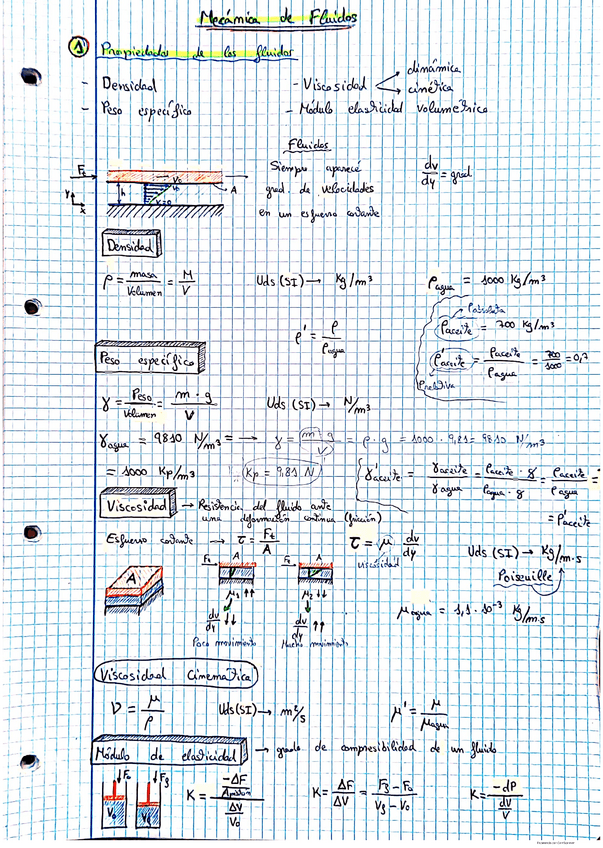 Mecánica de Fluidos
1) Propiedades de los fluidos
- Densidad
- Peso específico
- Viscosidad → dinámica
→ cinética
- Módulo elasticidad volumétrica
Fluidos
Siempre aparece
grad. de velocidades
en un esfuerzo cortante
dv/dy = grad
F₀ h V₀ V₀ V=0 A
Y X
Densidad
ρ = masa/Volumen = M/V
Uds (SI) → Kg/m³
ρagua = 1000 Kg/m³
ρ' = ρ/ρagua
ρabsoluta
ρaceite = 700 Kg/m³
ρ'aceite = ρaceite/ρagua = 700/1000 = 0,7
ρrelativa
Peso específico
γ = Peso/Volumen = m · g/V
Uds (SI) → N/m³
γagua = 9810 N/m³ = → γ = m · g/V = ρ · g = 1000 · 9,81 = 9810 N/m³
= 1000 Kp/m³
Kp = 9,81 N
γ'aceite = γaceite/γagua = ρaceite · g/ρagua · g = ρaceite/ρagua =
= ρ'aceite
Viscosidad → Resistencia del fluido ante
una deformación continua (fricción)
Esfuerzo cortante → τ = Ft/A
τ = μ · dv/dy
viscosidad
Uds (SI) → Kg/m·s
Poiseuille
A
Ft A
μ₁ ↑↑
dv/dy ↓↓
Poco movimiento
Ft A
μ₂ ↓↓
dv/dy ↑↑
Mucho movimiento
μagua = 1,1 · 10⁻³ Kg/m·s
Viscosidad Cinematica
ν = μ/ρ
Uds(SI) → m²/s
μ' = μ/μagua
Módulo de elasticidad → grado de compresibilidad de un fluido
F₀ V₀
Ff Vf
K = -ΔF/Apiston / ΔV/V₀
K = ΔF/ΔV = Ff - F₀/Vf - V₀
K = -dP / dV/V